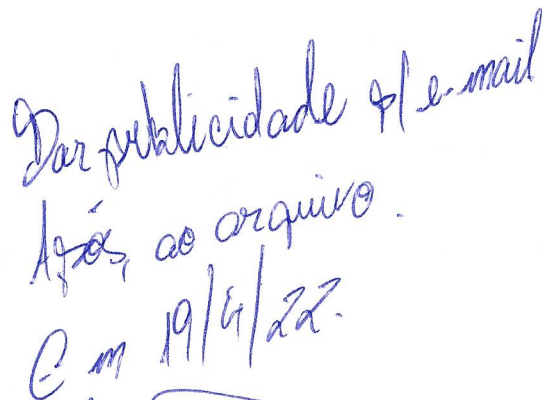 Dar publicidade p/ e-mail
Após, ao arquivo.
Em 19/4/22.